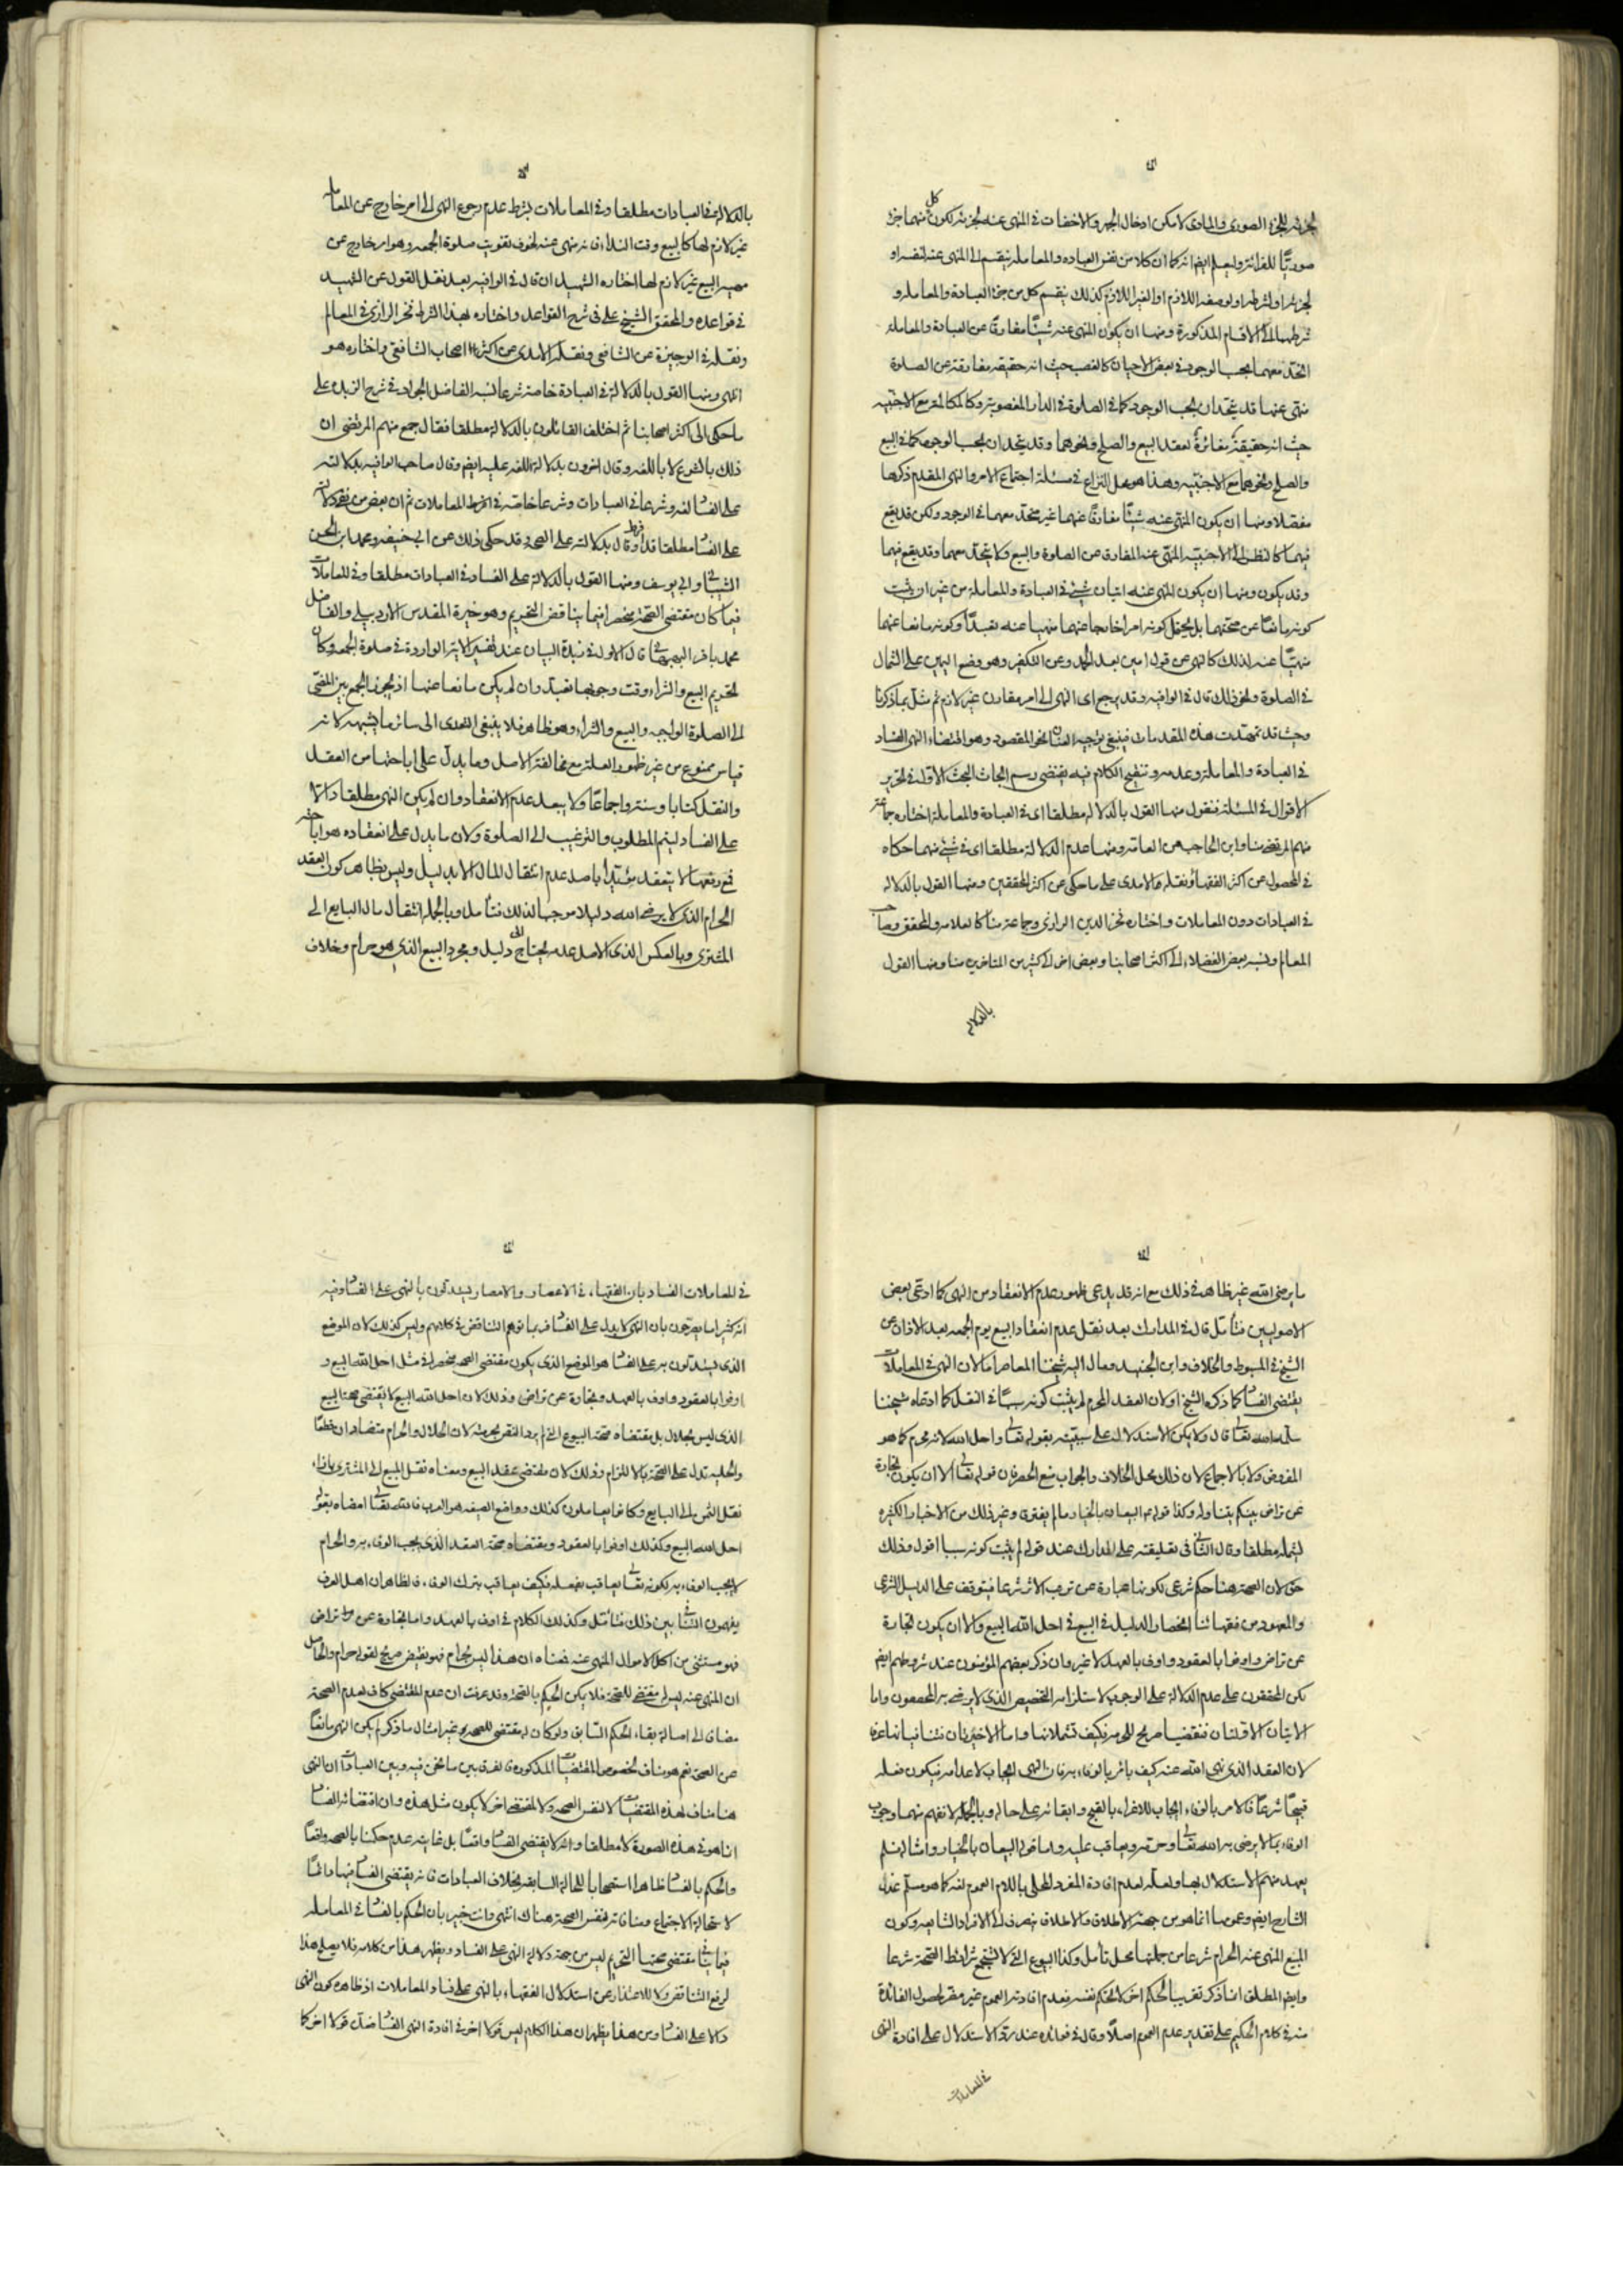 الصورى والمادى لامكن ادخال الجهر والاخفات فى المنهى عنه لجزئه لكون كل منهما جزء
صوريًا للقرائة وليعلم ايضا انه كما ان كلا من نفس العباده والمعامله ينقسم الى المنهى عنه لنفسه او
لجزئه او لشرطه او لوصفه اللازم او الغير اللازم كذلك ينقسم كل من جزء العبادة والمعامله و
شرطهما الى الاقسام المذكورة ومنها ان يكون المنهى عنه شيئًا مفارقًا عن العبادة والمعامله
اتحد معهما بحسب الوجود فى بعض الاحيان كالغصب حيث انه حقيقه مفارقه عن الصلوة
منهى عنها قد يتحدان بحسب الوجود كما فى الصلوة فى الدار المغصوبة وكالمكالمة مع الاجنبيه
حيث انه حقيقة مغائرة لعقد البيع والصلح ونحوهما وقد يتحدان بحسب الوجود كما فى البيع
والصلح ونحوهما مع الاجنبيه وهذا هو محل النزاع فى مسئلة اجتماع الامر والنهى المقدم ذكرها
مفصلا ومنها ان يكون المنهى عنه شيئًا مفارقًا عنهما غير متحد معهما فى الوجود ولكن قد يقع
فيهما كالنظر الى الاجنبيه المنهى عنه المفارق عن الصلوة والبيع ولا يتحد معهما وقد يقع فيهما
وقد يكون ومنها ان يكون المنهى عنه اتيان شيئ فى العبادة والمعاملة من غير ان يثبت
كونه مانعًا عن صحتهما بل يحتمل كونه امرا خارجا عنهما منهيا عنه تعبدًا وكونه مانعا عنهما
منهيًا عنه لذلك كالنهى عن قول امين بعد الحمد وعن التكفير وهو وضع اليمين على الشمال
فى الصلوة ونحو ذلك قال فى الوافيه وقد يرجع اى النهى الى امر مقارن غير لازم ثم مثل بما ذكرنا
وحيث قد تمهدت هذه المقدمات فينبغى توجيه العنان نحو المقصود وهو اقتضاء النهى الفساد
فى العبادة والمعاملة وعدمه وتنقيح الكلام فيه يقتضى رسم ابحاث البحث الاول فى تحرير
الاقوال فى المسئلة فنقول منها القول بالدلاله مطلقا اى فى العبادة والمعاملة اختاره جماعة
منهم المرتضى منا وابن الحاجب من العامة ومنها عدم الدلالة مطلقا اى فى شيئ منهما حكاه
فى المحصول عن اكثر الفقهاء ونقله الامدى على ما حكى عن اكثر المحققين ومنها القول بالدلاله
فى العبادات دون المعاملات واختاره فخر الدين الرازى وجماعة منا كالعلامه والمحقق وصاحب
المعالم ونسبه بعض الفضلاء الى اكثر اصحابنا وبعض اخر الى كثير من المتاخرين منا ومنها القول
بالدلاله
بالدلالة فى العبادات مطلقا وفى المعاملات بشرط عدم رجوع النهى الى امر خارج عن المعامله
غير لازم لها كالبيع وقت النداء فانه منهى عنه لخوف تفويت صلوة الجمعه وهو امر خارج عن
البيع غير لازم لها اختاره الشهيد ان قال فى الوافيه بعد نقل القول عن الشهيد
فى قواعده والمحقق الشيخ على فى شرح القواعد واختاره بهذا الشرط فخر الرازى فى المعالم
ونقله فى الوجيزة عن الشافعى ونقله الامدى عن اكثر اصحاب الشافعى واختاره هو
انتهى ومنها القول بالدلالة فى العبادة خاصة شرعا نسبه الفاضل الجواد فى شرح الزبده على
ما حكى الى اكثر اصحابنا ثم اختلف القائلون بالدلالة مطلقا فقال جمع منهم المرتضى ان
ذلك بالشرع لا باللغه وقال اخرون بدلالة اللغه عليه ايضا وقال صاحب الوافيه بدلالته
على الفساد لغة وشرعا فى العبادات وشرعا خاصة فى المعاملات ثم ان بعض من نفى دلالته
على الفساد مطلقا قد افرط وقال بدلالته على الصحة وقد حكى ذلك عن ابى حنيفه ومحمد ابن الحسن
الشيبانى وابى يوسف ومنها القول بالدلالة على الفساد فى العبادات مطلقا وفى المعاملات
فيما كان مقتضى الصحة منحصرا فيما يناقض التحريم وهو خيرة المقدس الاردبيلى والفاضل
محمد باقر البهبهانى قال الاول فى زبدة البيان عند تفسير الاية الواردة فى صلوة الجمعه وكان
تحريم البيع والشراء وقت وجوبها تعبد وان لم يكن مانعا عنها اذ يجوز الجمع بين السعى
الى الصلوة الواجبه والبيع والشراء وهو ظاهر فلا ينبغى التعدى الى سائر ما يشبهه لانه
قياس ممنوع من غير ظهور العلة مع مخالفة الاصل وما يدل على اباحتها من العقل
والنقل كتابا وسنة واجماعًا ولا يبعد عدم الانعقاد وان لم يكن النهى مطلقا دالا
على الفساد ليتم المطلوب والترغيب الى الصلوة ولان ما يدل على انعقاده هو اباحته
فمع رفعها لا ينعقد مؤيدا باصل عدم انتقال المال الا بدليل وليس بظاهر كون العقد
الحرام الذى لا يرضى الله دليلا موجبا لذلك فتأمل وبالجملة انتقال مال البايع الى
المشترى وبالعكس الذى الاصل عدمه يحتاج الى دليل ومجرد البيع الذى هو حرام وخلاف
ما يرضى الله غير ظاهر فى ذلك مع انه قد يدعى ظهور عدم الانعقاد من النهى كما ادعى بعض
الاصوليين فتأمل قال فى المدارك بعد نقل عدم انعقاد البيع يوم الجمعه بعد الاذان عن
الشيخ فى المبسوط والخلاف وابن الجنيد ومال اليه شيخنا المعاصر اما لان النهى فى المعاملات
يقتضى الفساد كما ذكره الشيخ او لان العقد المحرم لم يثبت كونه سببًا فى النقل كما ادعاه شيخنا
سلمه الله تعالى قال ولا يمكن الاستدلال على سببيته بقوله تعالى واحل الله لانه محرم كما هو
المفروض ولا بالاجماع لان ذلك محل الخلاف والجواب منع الحصر فان قوله تعالى الا ان يكون تجارة
عن تراض منكم يتناوله وكذا قوله البيعان بالخيار ما لم يفترقا وغير ذلك من الاخبار الكثيرة
الشاملة مطلقا وقال الثانى فى تعليقته على المدارك عند قوله لم يثبت كونه سببا اقول وذلك
حق لان الصحة هنا حكم شرعى لكونها عبارة عن ترتب الاثر شرعا فيتوقف على الدليل الشرعى
والمعهود من فقهائنا انحصار الدليل فى البيع فى احل الله البيع والا ان يكون تجارة
عن تراض واوفوا بالعقود واوف بالعهد لا غير وان ذكر بعضهم المؤمنون عند شروطهم ايضا
لكن المحققون على عدم الدلالة على الوجوب لاستلزامه التخصيص الذى لا يرضى به المحققون واما
الايتان الاولتان فنقيضا صريح للحرمة فكيف تشملانها واما الاخيرتان فتنافيانها عرفا
لان العقد الذى نهى الله عنه كيف يأمر بالوفاء به فان النهى ايجاب لاعدامه فيكون فعله
قبيحًا شرعًا فالامر بالوفاء ايجاب للاغراء بالقبيح وابقائه على حاله وبالجملة لا نفهم منهما وجوب
الوفاء بما لا يرضى به الله تعالى وحرمه ويعاقب عليه واما قوله البيعان بالخيار وامثاله فلم
يعهد منهم الاستدلال بها ولعله لعدم افادة المفرد المحلى باللام العموم لغة كما هو مسلم عند
الشارح ايضا وعمومها انما هو من جهة الاطلاق والاطلاق ينصرف الى الافراد الشايعه وكون
البيع المنهى عنه الحرام شرعا من جملتها محل تأمل وكذا البيوع التى لا تستجمع شرائط الصحة شرعا
وايضا المطلق انما ذكر تقريبا لحكم اخر لا لحكم نفسه فعدم افادته العموم غير مضر لحصول الفائدة
منه فى كلام الحكيم على تقدير عدم العموم اصلا وقال فى فوائده عند رد الاستدلال على افادة النهى
فى المعاملات
فى المعاملات الفساد بان الفقهاء فى الاعصار والامصار يستدلون بالنهى على الفساد فيه
انه كثيرا ما يصرحون بان النهى لا يدل على الفساد فربما توهم التناقض فى كلامهم وليس كذلك لان الموضع
الذى يستدلون به على الفساد هو الموضع الذى يكون مقتضى الصحة منحصرا فى مثل احل الله البيع و
اوفوا بالعقود واوف بالعهد وتجارة عن تراض وذلك لان احل الله البيع لا يقتضى صحة البيع
الذى ليس بحلال بل مقتضاه صحة البيوع التى لم يرد النص بحرمته لان الحلال والحرام متضادان قطعًا
والحليه تدل على الصحة بالالتزام وذلك لان مقتضى عقد البيع ومعناه نقل المبيع الى المشترى بازاء
نقل الثمن الى البايع وكانوا يعاملون كذلك وواضع الصيغه هو العرب فالله تعالى امضاه بقوله
احل الله البيع وكذلك اوفوا بالعقود ومقتضاه صحة العقد الذى يجب الوفاء به والحرام
لا يجب الوفاء به لكونه تعالى يعاقب بفعله فكيف يعاقب بترك الوفاء فالظاهر ان اهل العرف
يفهمون التنافى بين ذلك فتأمل وكذلك الكلام فى اوف بالعهد واما تجارة عن تراض
فهو مستثنى من اكل الاموال المنهى عنه فمعناه ان هذا ليس بحرام فهو نقيض صريح لقوله حرام والحاصل
ان المنهى عنه ليس له مقتضى للصحة فلا يمكن الحكم بالصحة وقد عرفت ان عدم المقتضى كاف لعدم الصحة
مضافا الى اصالة بقاء الحكم السابق ولو كان له مقتضى للصحة غير امثال ما ذكر لم يكن النهى مانعًا
عن الصحة نعم هو مناف لخصوص المقتضيات المذكورة فالفرق بين ما نحن فيه وبين العبادات ان النهى
هنا مناف لهذه المقتضيات لا لنفس الصحة ولا لمقتضى اخر لا يكون مثل هذه وان اقتضائه الفساد
انما هو فى هذه الصورة لا مطلقا وانه لا يقتضى الفساد واقعًا بل غايته عدم حكمنا بالصحة واقعًا
والحكم بالفساد ظاهرا استصحابا للحالة السابقة بخلاف العبادات فانه يقتضى الفساد فيها دائمًا
لاستحالة الاجتماع ومنافاته لنفس الصحة هناك انتهى وانت خبير بان الحكم بالفساد فى المعامله
فيما ينافى مقتضى صحتها التحريم ليس من جهة دلالة النهى على الفساد ويظهر هذا من كلامه فلا يصلح هذا
لرفع التناقض ولا للاعتذار عن استدلال الفقهاء بالنهى على فساد المعاملات اذ ظاهره كون النهى
دالا على الفساد ومن هذا يظهر ان هذا الكلام ليس قولا اخر فى افادة النهى الفساد